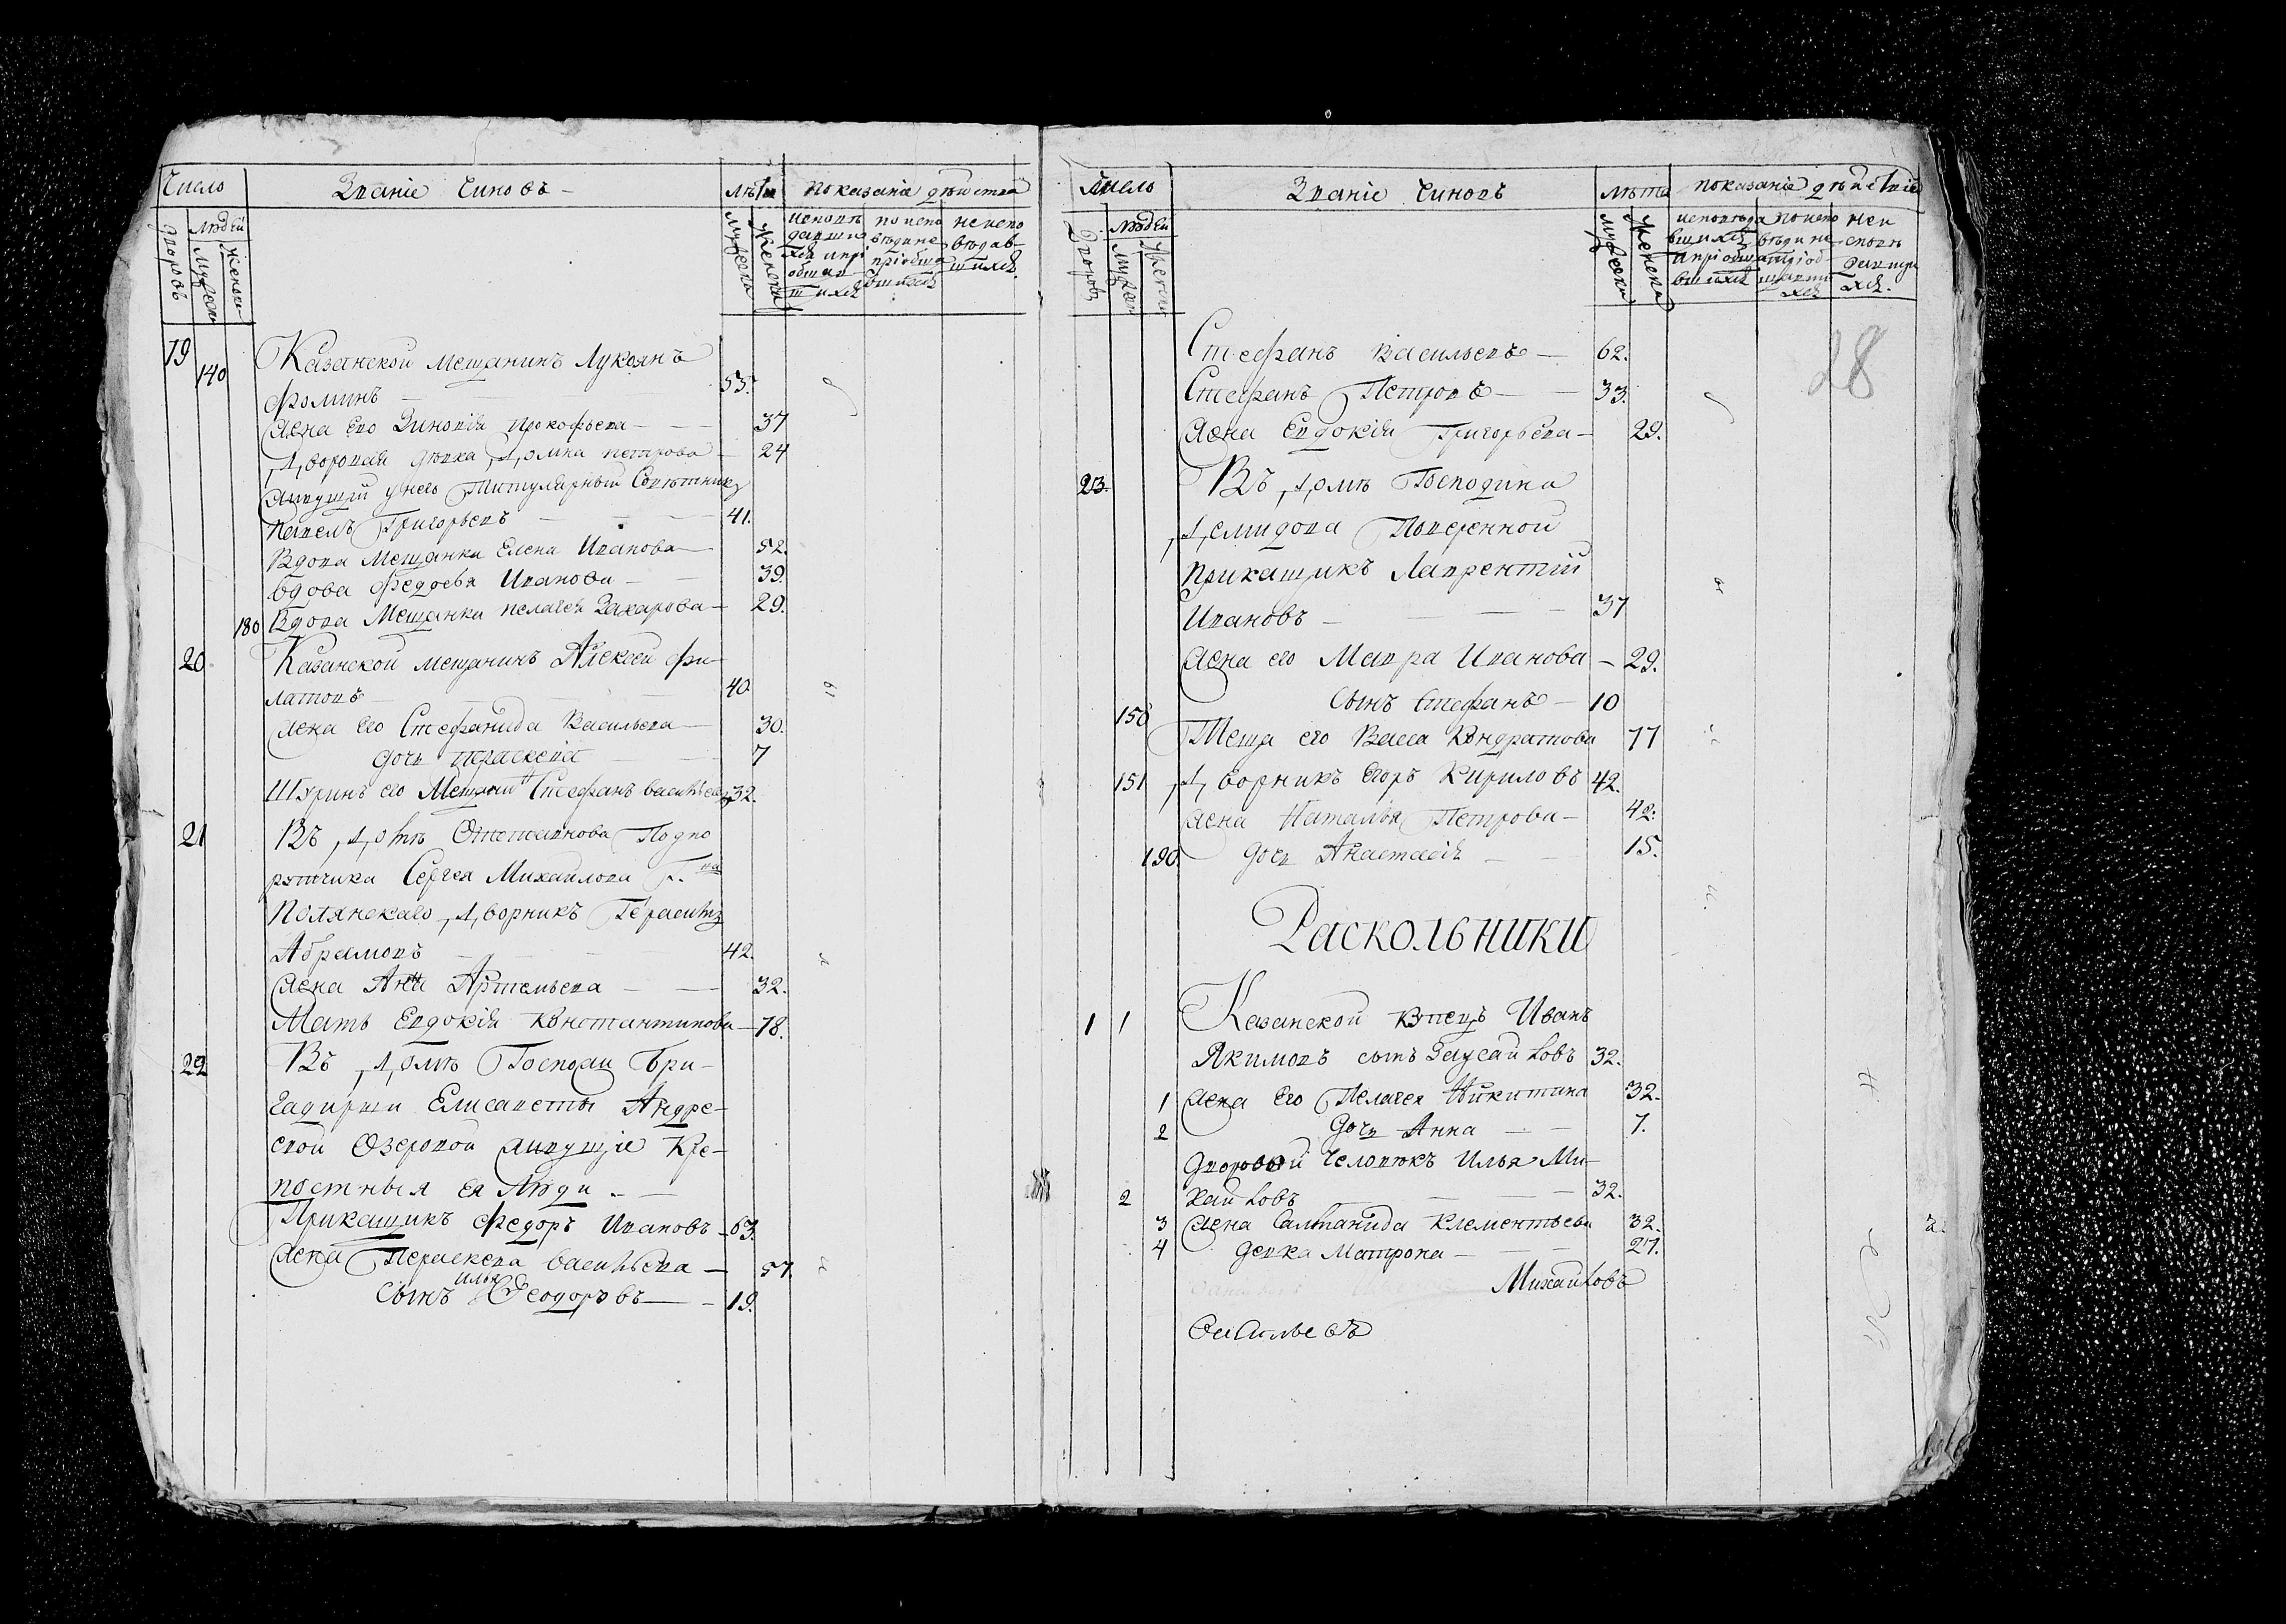 Число Званіе Чиновъ Лѣта Показаніе дѣйства
дворовъ Людей мужеска женска мужеска женска
исповѣдавшихся и пріобщавшихся
по исповѣди не пріобщавшихся
не исповѣдавшихся
19 140 Казанской мещанинъ Лукоянъ
Фоминъ 55.
Жена его Зиновія Прокофьева 37
Дворовая девка Домна Петрова 24
Живущій у него Титулярный Советникъ
Павелъ Григорьевъ 41.
Вдова мещанка Елена Иванова 52.
Вдова Федосья Иванова 39.
180 Вдова Мещанка Пелагея Захарова 29.
20. Казанской мещанинъ Алексей Фи-
латовъ 40.
Жена его Стефанида Васильева 30.
дочь Параскева 7
Шуринъ его Стефанъ Васильевъ 32.
21 Въ домѣ Подпо
ручика Сергея Михайлова
Полянскаго дворникъ Герасимъ
Абрамовъ 42.
Жена Анна Артемьева 32.
Мать Евдокія Константинова 78.
22 Въ домѣ Госпожи Бри-
гадирши Елисаветы Андре-
евой Озеровой живущіе Кре-
постныя ея Люди
Прикащикъ Федоръ Ивановъ 63.
Жена Параскева Васильева 57.
Илья
Сынъ Феодоровъ 19.
Число Званіе Чиновъ Лѣта Показаніе дѣйствіе
дворовъ Людей мужеска женска мужеска женска
исповѣдавшихся и пріобщавшихся
по исповѣди не пріобщавшихся
не исповѣдавшихся
28
Стефанъ Васильевъ 62.
Стефанъ Петровъ 33.
Жена Евдокія Григорьева 29.
23. Въ домѣ Господина
Демидова Поверенной
Прикащикъ Лаврентій
Ивановъ 37
Жена его Мавра Иванова 29.
150 Сынъ Стефанъ 10
Теща его Васса Кондратова 77
151 Дворникъ Егоръ Кириловъ 42.
Жена Наталья Петрова 42.
190. дочь Анастасія 15.
Раскольники
1 1 Казанской Купецъ Иванъ
Якимовъ сынъ 32.
1 Жена его Пелагея Никитина 32.
2 дочь Анна 7.
Дворовой человѣкъ Илья Ми-
2 хайловъ 32.
3 Жена Клементьева 32.
4 девка Матрона 27.
Михайловъ
Васильевъ